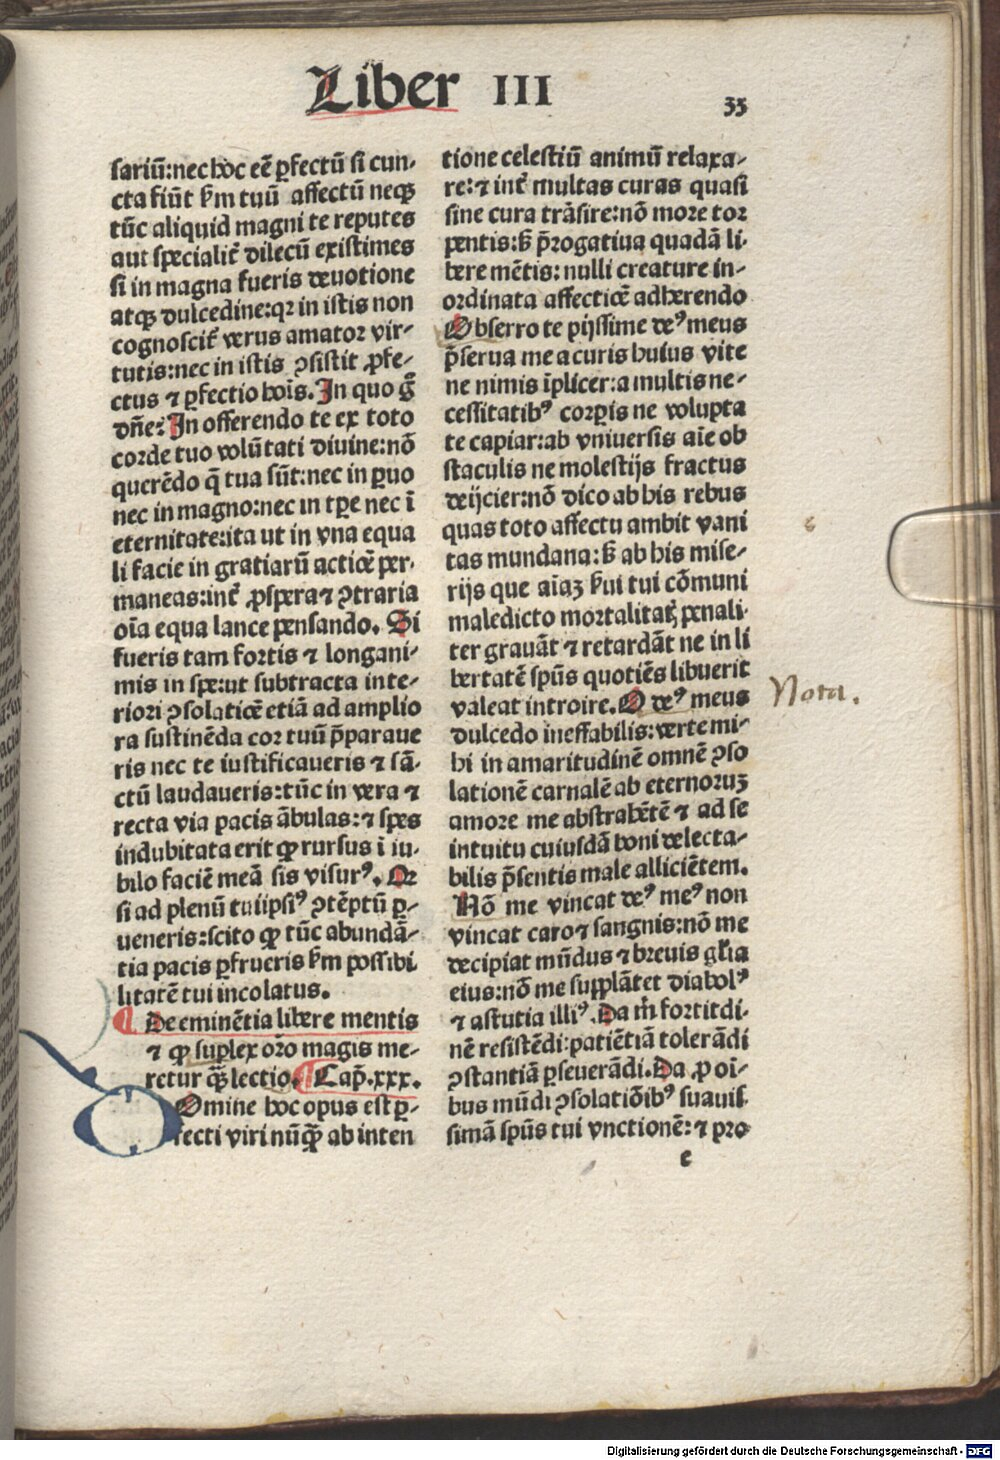 Liber III
35
sariū:nec hoc eē ꝑfectū si cun-
cta fiūt ẜm tuū affectū neqꝫ
tūc aliquid magni te reputes
aut specialit̄ dilecū existimes
si in magna fueris deuotione
atqꝫ dulcedine:qꝛ in istis non
cognoscit̄ verus amator vir-
tutis:nec in istis ꝯsistit ꝓfe-
ctus ⁊ ꝑfectio hoīs. In quo g̊
dn̄e: In offerendo te ex toto
corde tuo volūtati diuine:nō
querēdo q̄ tua sūt:nec in ꝑuo
nec in magno:nec in tꝑe nec ī
eternitate:ita ut in vna equa
li facie in gratiarū actiōe per-
maneas:int̄ ꝓspera ⁊ ꝯtraria
oīa equa lance pensando. Si
fueris tam fortis ⁊ longani-
mis in spe:ut subtracta inte-
riori ꝯsolatiōe etiā ad amplio
ra sustinēda cor tuū p̄paraue
ris nec te iustificaueris ⁊ sā-
ctū laudaueris:tūc in vera ⁊
recta via pacis ābulas:⁊ spes
indubitata erit ꝙ rursus ī iu-
bilo faciē meā sis visurꝰ. Qꝛ
si ad plenū tuiipsiꝰ ꝯtēptū ꝑ-
ueneris:scito ꝙ tūc abundā-
tia pacis ꝑfrueris ẜm possibi
litatē tui incolatus.
De eminētia libere mentis
⁊ ꝙ suplex oro magis me-
retur qꝫ̄ lectio. Cap̄.xxx.
Domine hoc opus est ꝑ-
fecti viri nūqꝫ̄ ab inten
tione celestiū animū relaxa-
re:⁊ int̄ multas curas quasi
sine cura trāsire:nō more tor
pentis:ẜ p̄rogatiua quadā li-
bere mētis:nulli creature in-
ordinata affectiōe adherendo
Obserro te pijssime deꝰ meus
p̄serua me a curis huius vite
ne nimis īplicer:a multis ne-
cessitatibꝰ corꝑis ne volupta
te capiar:ab vniuersis aīe ob
staculis ne molestijs fractus
deijcier:nō dico ab his rebus
quas toto affectu ambit vani
tas mundana:ẜ ab his mise-
rijs que aīaꝫ ẜui tui cōmuni
maledicto mortalitatꝭ penali-
ter grauāt ⁊ retardāt ne in li
bertatē spūs quotiēs libuerit
valeat introire. O deꝰ meus
dulcedo ineffabilis:verte mi-
hi in amaritudinē omnē ꝯso
lationē carnalē ab eternoruꝫ
amore me abstrahētē ⁊ ad se
intuitu cuiusdā boni delecta-
bilis p̄sentis male alliciētem.
Nō me vincat deꝰ meꝰ non
vincat caro ⁊ sangnis:nō me
decipiat mūdus ⁊ breuis gl̄ia
eius:nō me supplātet diabolꝰ
⁊ astutia illiꝰ. Da m̄ fortitdi-
nē resistēdi:patiētiā tolerādi
ꝯstantiā ꝑseuerādi. Da ꝓ oi-
bus mūdi ꝯsolatiōibꝰ suauis-
simā spūs tui vnctionē:⁊ pro
Nota.
e
Digitalisierung gefördert durch die Deutsche Forschungsgemeinschaft - DFG